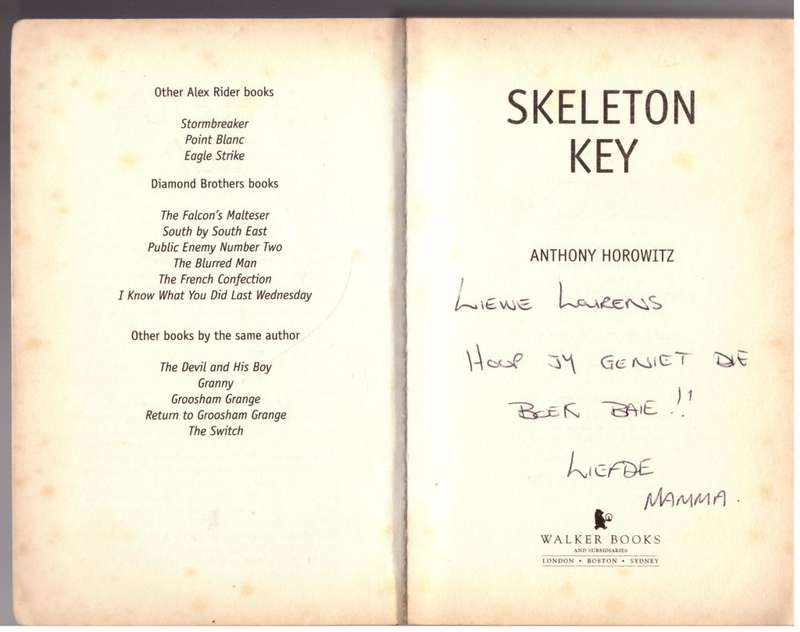 Other Alex Rider books
Stormbreaker
Point Blanc
Eagle Strike
Diamond Brothers books
The Falcon's Malteser
South by South East
Public Enemy Number Two
The Blurred Man
The French Confection
I Know What You Did Last Wednesday
Other books by the same author
The Devil and His Boy
Granny
Groosham Grange
Return to Groosham Grange
The Switch
SKELETON
KEY
ANTHONY HOROWITZ
LIEWE LOURENS
HOOP JY GENIET DIE
BOEK BAIE !!
LIEFDE
MAMMA.
WALKER BOOKS
AND SUBSIDIARIES
LONDON • BOSTON • SYDNEY